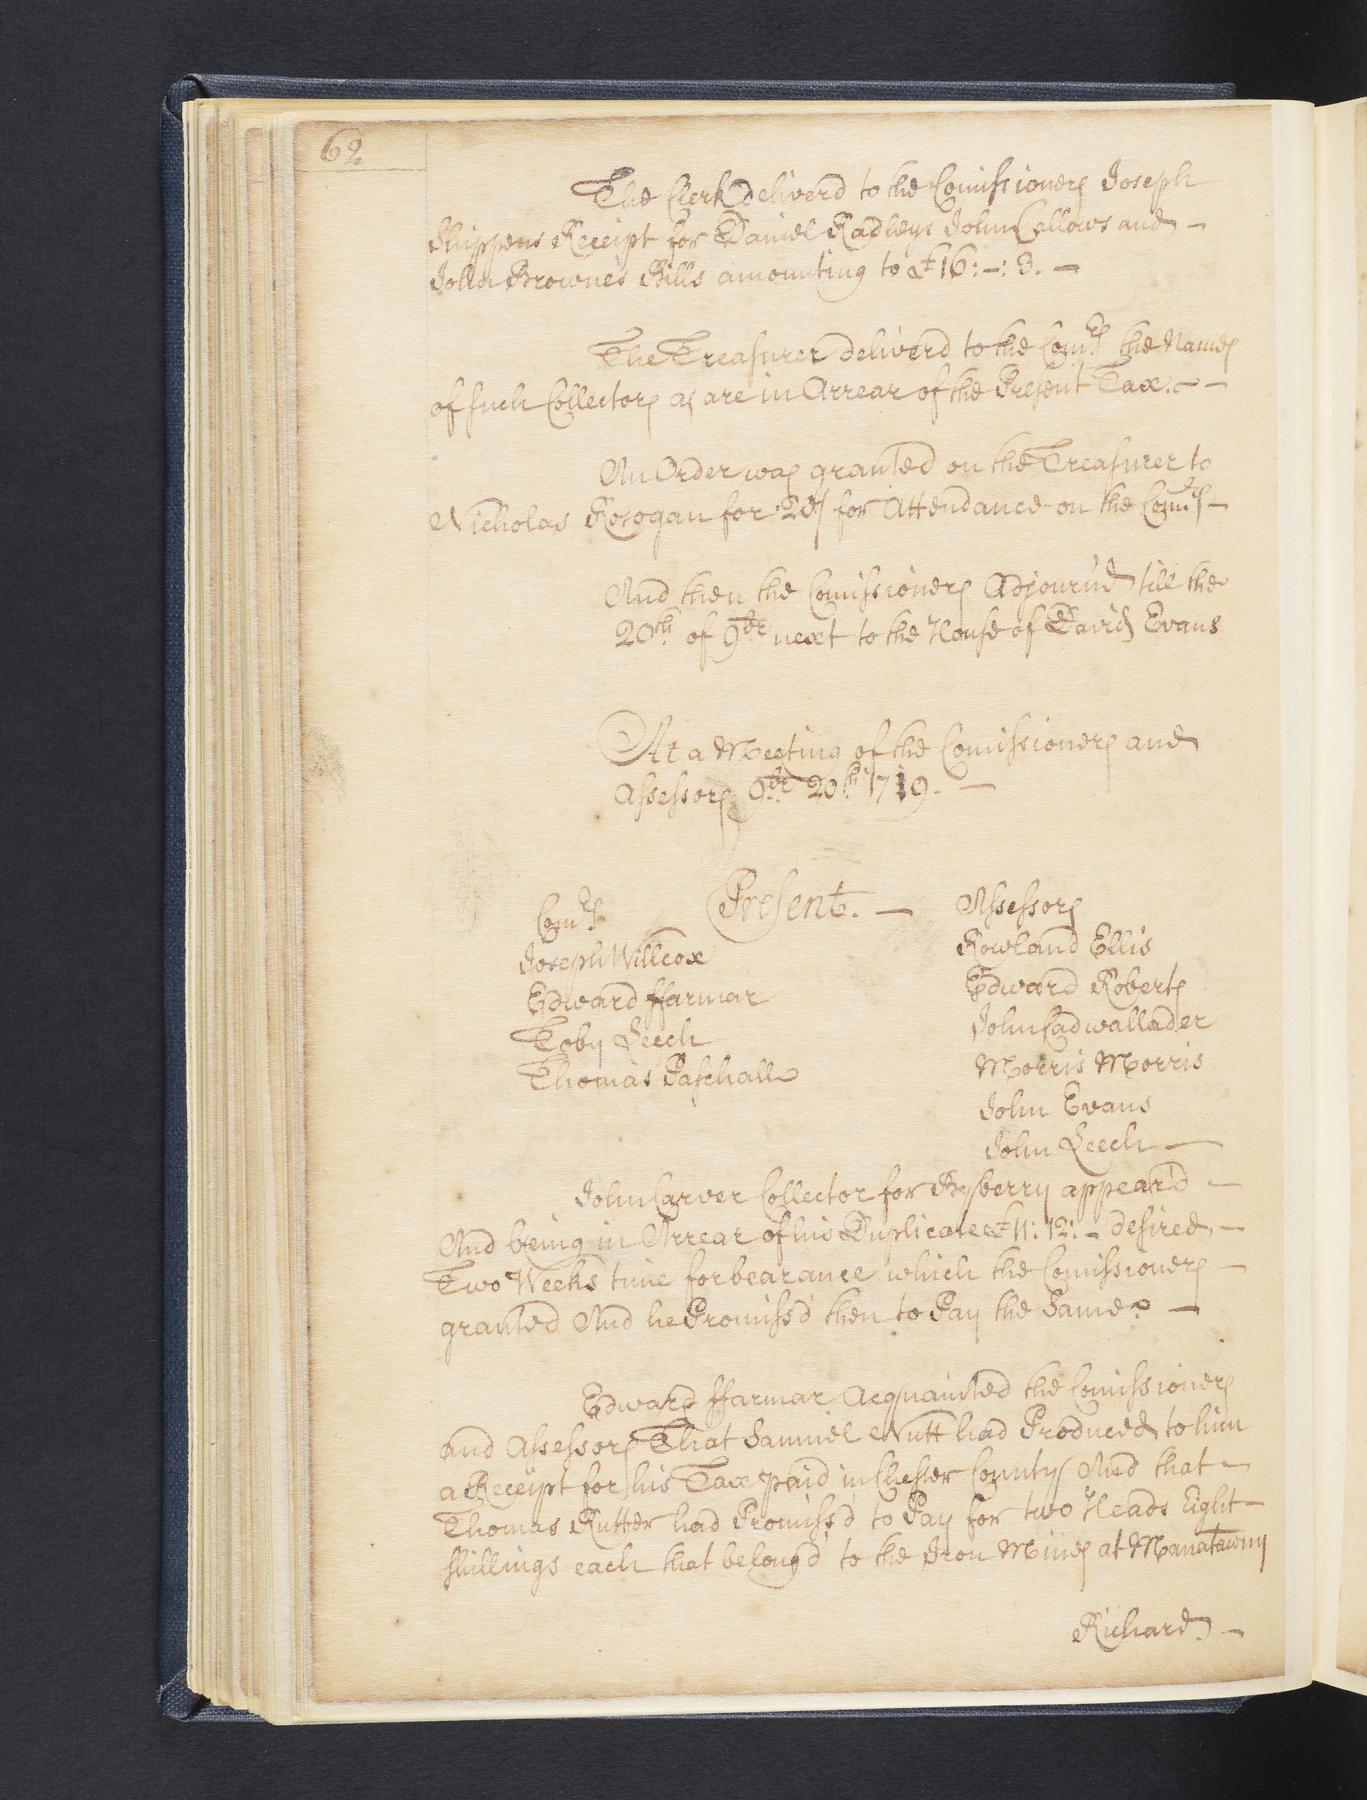 62
The Clerk deliverd to the Comissioners Joseph
Shippens Receipt for Daniel Radleys John Callows and —
John Browne's Bills amounting to £16:–:3. —
The Treasurer deliverd to the Comrs the Names
of such Collectors as are in Arrear of the Present Tax. — —
An Order was granted on the Treasurer to
Nicholas Rosogan for for Attendance on the Comrs —
And then the Comissioners Adjourn'd till the
20th of 9br next to the House of David Evans
At a Meeting of the Comissioners and
Assessors 9br 20th 1719. —
Comrs Present. — Assessors
Joseph Willcox Rowland Ellis
Edward ffarmar Edward Roberts
Toby Leech John Cadwallader
Thomas Paschall Morris Morris
John Evans
John Leech —
John Carver Collector for Byberry appear'd —
And being in Arrear of his Duplicate £11:12:– desired —
Two Weeks time forbearance which the Comissioners —
granted And he Promiss'd then to Pay the Same. —
Edward ffarmar Acquainted the Comissioners
and Assessors That Samuel Nutt had Produced to him
a Receipt for his Tax paid in Chester County And that —
Thomas Rutter had Promiss'd to Pay for two Heads Eight —
shillings each that belong'd to the Iron Mines at Manatawny
Richard —